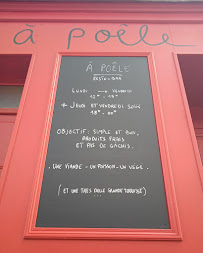 à poêle
À POÊLE
RESTO - BAR
LUNDI → VENDREDI
12H - 14H
+ JEUDI ET VENDREDI SOIR.
18H - 00H
OBJECTIF : SIMPLE ET BON,
PRODUITS FRAIS
ET PAS DE GÂCHIS.
. UNE VIANDE - UN POISSON - UN VÉGÉ.
(ET UNE TRÈS BELLE GRANDE TERRASSE)